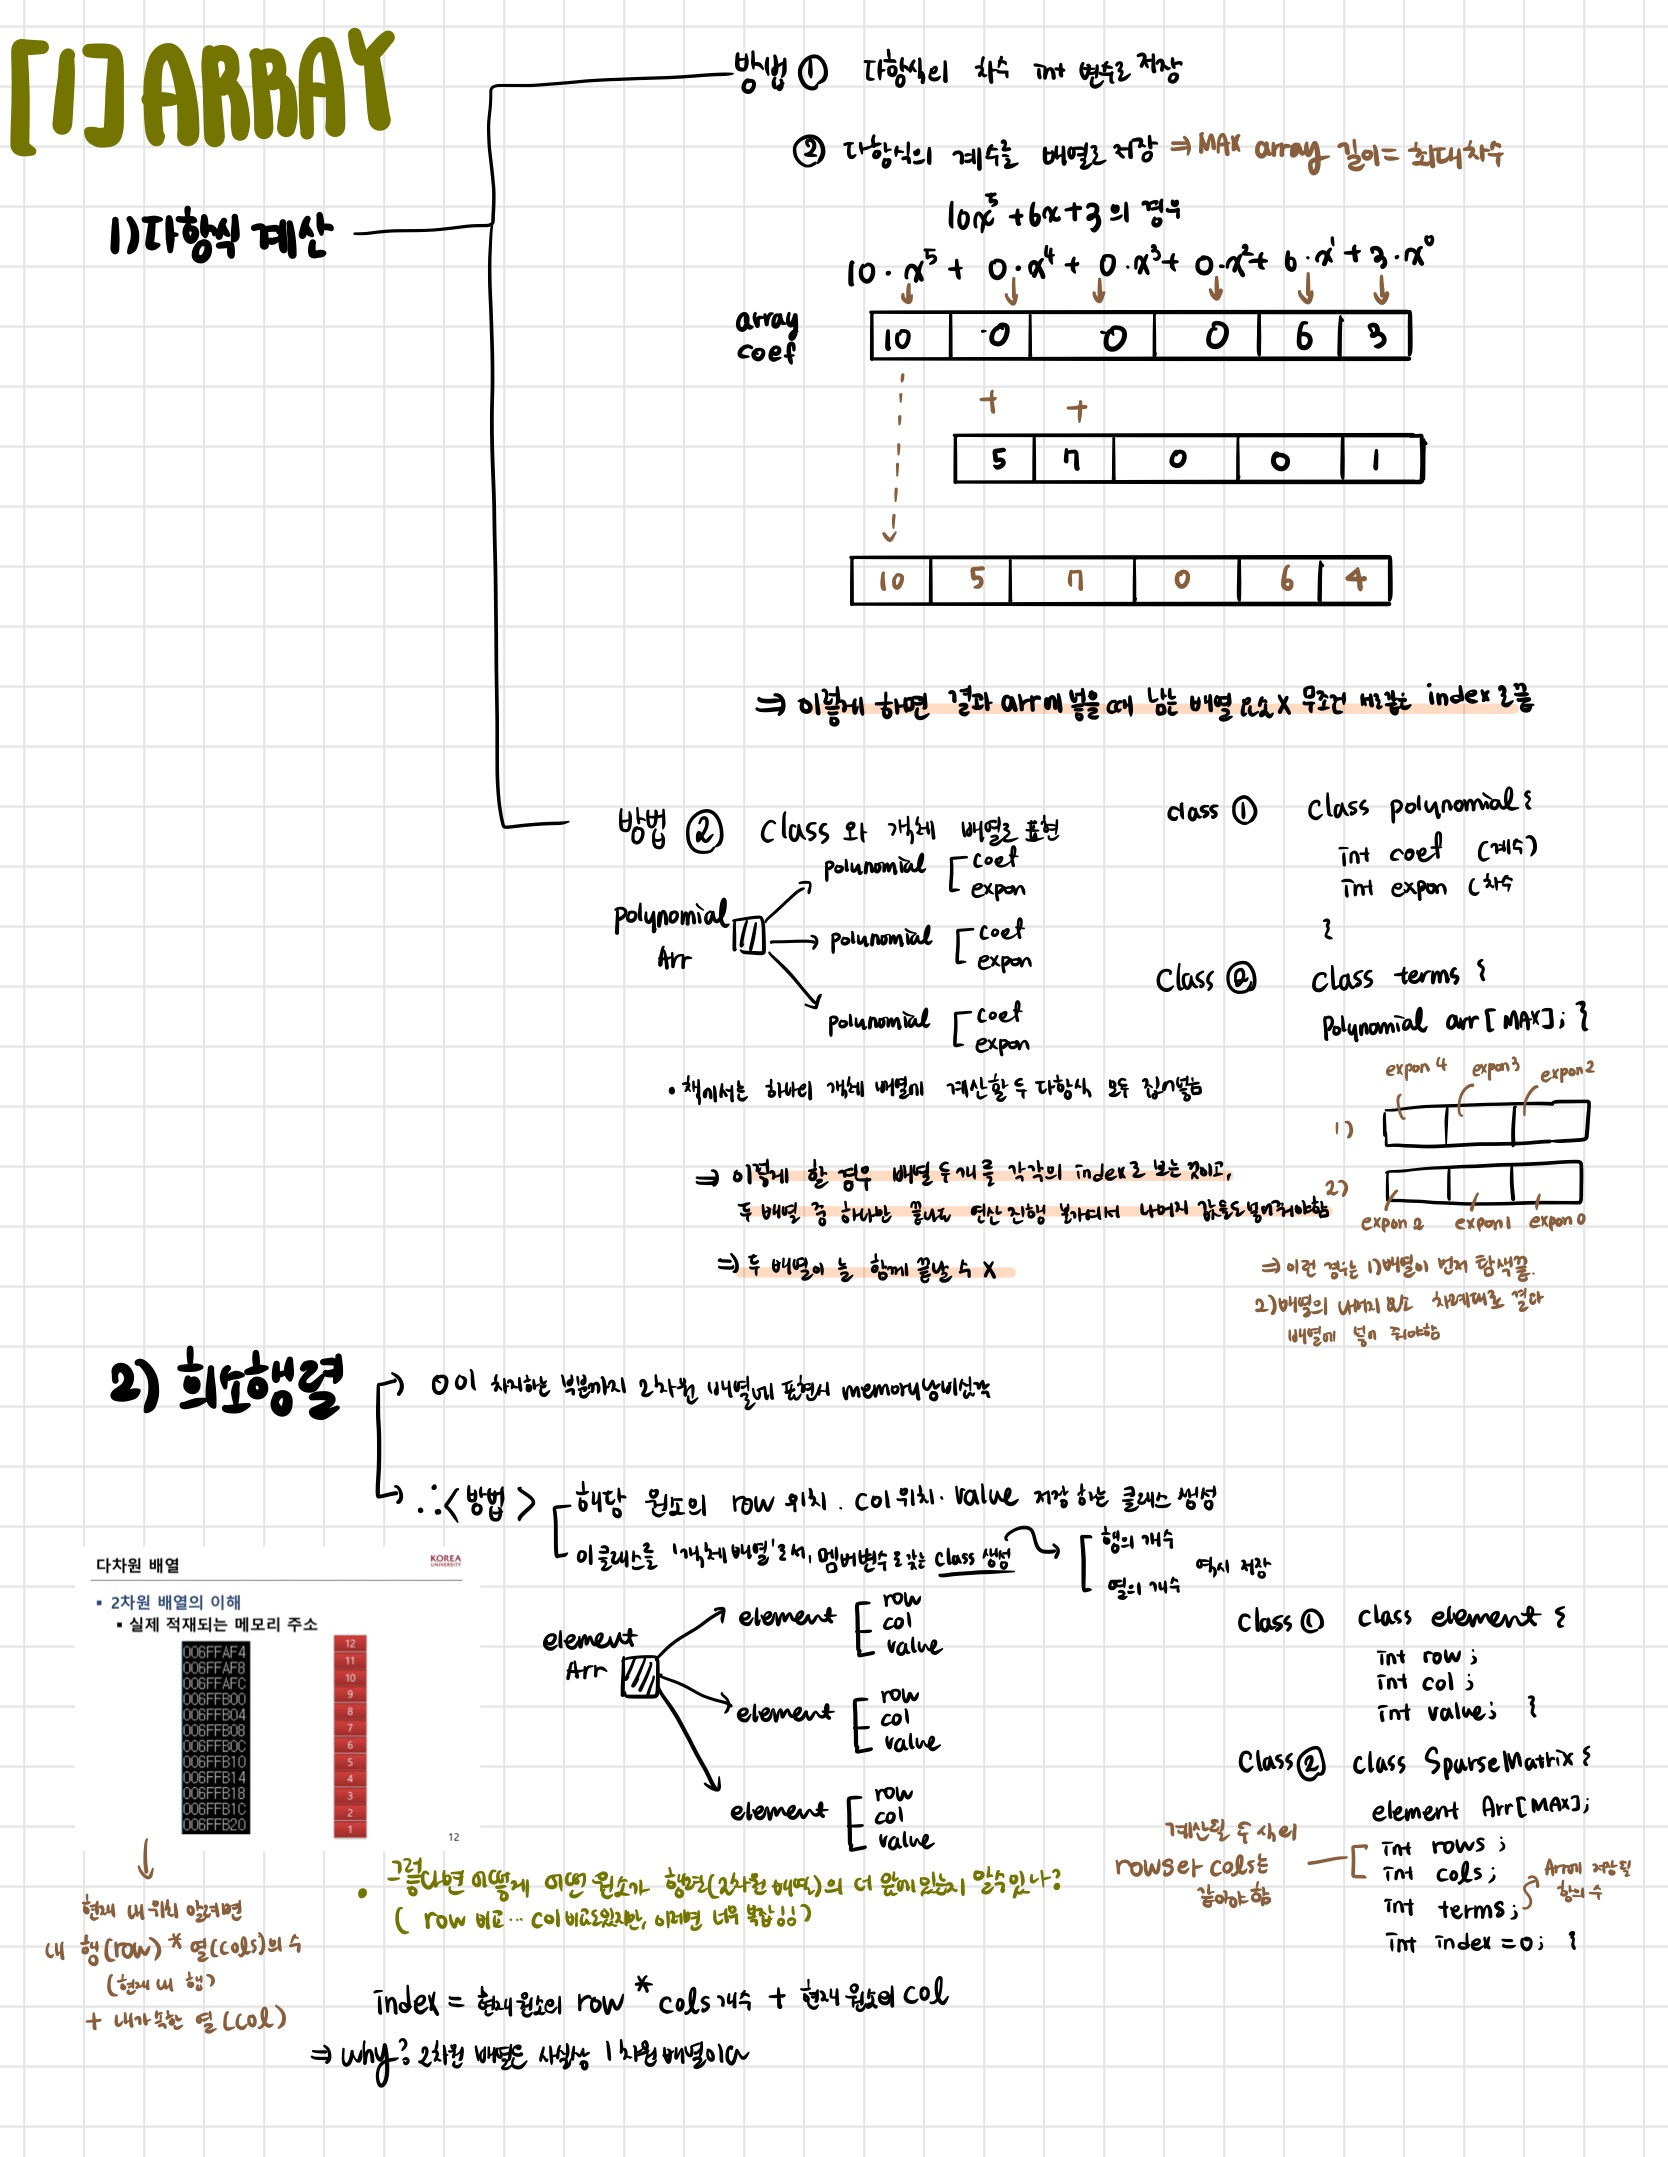 [1] ARRAY
1) 다항식 계산
방법 ① 다항식의 차수 int 변수로 저장
② 다항식의 계수를 배열로 저장 ⇒ MAX array 길이 = 최대차수
10x⁵ + 6x + 3 의 경우
10·x⁵ + 0·x⁴ + 0·x³ + 0·x² + 6·x¹ + 3·x⁰
array
coef
10 0 0 0 6 3
+ +
5 7 0 0 1
10 5 7 0 6 4
⇒ 이렇게 하면 결과 arr에 넣을 때 남는 배열 요소 X 무조건 서로 같은 index로 끝
방법 ② Class 와 객체 배열로 표현
polynomial
Arr
polunomial
coef
expon
polunomial
coef
expon
polunomial
coef
expon
class ① class polynomial {
int coef (계수)
int expon (차수
}
Class ② class terms {
Polynomial arr [MAX]; }
• 책에서는 하나의 객체 배열에 계산할 두 다항식 모두 집어넣음
⇒ 이렇게 할 경우 배열 두 개를 각각의 index로 보는 것이고,
두 배열 중 하나만 끝나도 연산 진행 불가여서 나머지 값들도 넣어줘야함
⇒ 두 배열이 늘 함께 끝날 수 X
expon 4 expon 3 expon 2
1)
2)
expon 2 expon 1 expon 0
⇒ 이런 경우는 1) 배열이 먼저 탐색끝.
2) 배열의 나머지 요소 차례대로 결과
배열에 넣어 줘야함
2) 희소행렬
→ 0이 차지하는 부분까지 2차원 배열에 표현시 memory 낭비심각
→ ∴ <방법>
해당 원소의 row 위치. col 위치. value 저장 하는 클래스 생성
이 클래스를 '객체 배열'로서, 멤버변수로 갖는 class 생성 →
행의 개수
열의 개수
역시 저장
element
Arr
element
row
col
value
element
row
col
value
element
row
col
value
class ① class element {
int row ;
int col ;
int value; }
Class ② class SparseMatrix {
element Arr [MAX];
int rows ;
int cols;
int terms;
int index = 0; }
계산될 두 식의
rows와 cols는
같아야 함
Arr에 저장될
항의 수
다차원 배열
KOREA
UNIVERSITY
▪ 2차원 배열의 이해
▪ 실제 적재되는 메모리 주소
006FFAF4
006FFAF8
006FFAFC
006FFB00
006FFB04
006FFB08
006FFB0C
006FFB10
006FFB14
006FFB18
006FFB1C
006FFB20
12
11
10
9
8
7
6
5
4
3
2
1
12
현재 내 위치 알려면
내 행(row) * 열(cols)의 수
(현재 내 행)
+ 내가 속한 열 (col)
• 그렇다면 어떻게 어떤 원소가 행렬(2차원 배열)의 더 앞에 있는지 알수있나?
( row 비교… col 비교도있지만, 이러면 너무 복잡!! )
index = 현재 원소의 row * cols 개수 + 현재 원소의 col
⇒ why? 2차원 배열은 사실상 1차원 배열이라